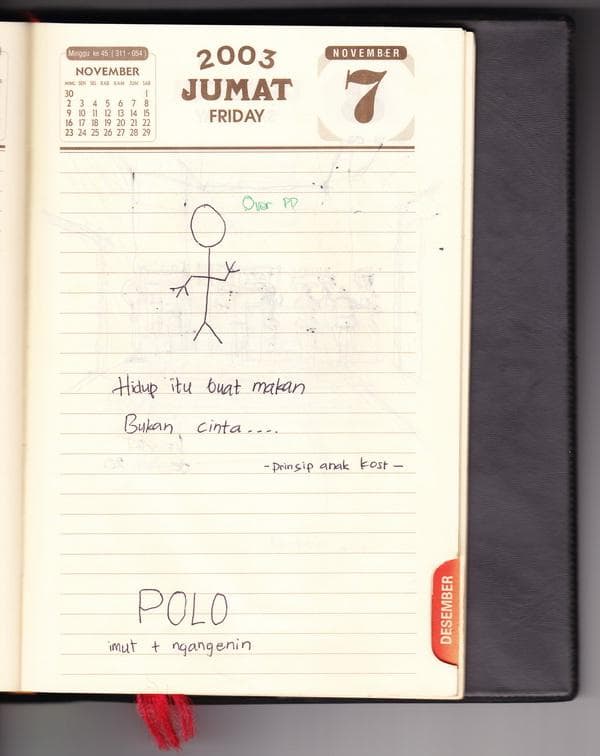 Minggu ke 45 ( 311 - 054 )
NOVEMBER
MING SEN SEL RAB KAM JUM SAB
30 1
2 3 4 5 6 7 8
9 10 11 12 13 14 15
16 17 18 19 20 21 22
23 24 25 26 27 28 29
2003
JUMAT
FRIDAY
NOVEMBER
7
Over PD
Hidup itu buat makan
Bukan cinta....
- prinsip anak kost -
POLO
imut + ngangenin
DESEMBER